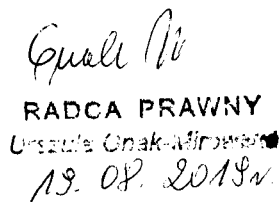 RADCA PRAWNY
Urszula Onak-Mirowska
19. 08. 2019r.